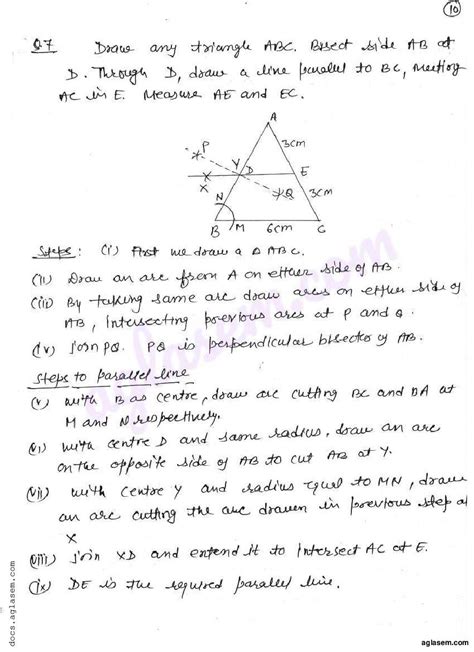 10
Q7 Draw any triangle ABC. Bisect side AB at
D. Through D, draw a line parallel to BC, meeting
AC in E. Measure AE and EC.
A
P
3cm
Y
D
E
X
Q
3cm
N
B
M
6cm
C
Steps: (i) First we draw a Δ ABC.
(ii) Draw an arc from A on either side of AB.
(iii) By taking same arc draw arcs on either side of
AB, intersecting previous arcs at P and Q.
(iv) Join PQ. PQ is perpendicular bisector of AB.
Steps to parallel line
(v) with B as centre, draw arc cutting BC and BA at
M and N respectively.
(vi) with centre D and same radius, draw an arc
on the opposite side of AB to cut AB at Y.
(vii) with centre Y and radius equal to MN, draw
an arc cutting the arc drawn in previous step at
X
(viii) Join XD and extend it to intersect AC at E.
(ix) DE is the required parallel line.
aglasem.com
docs.aglasem.com
aglasem.com